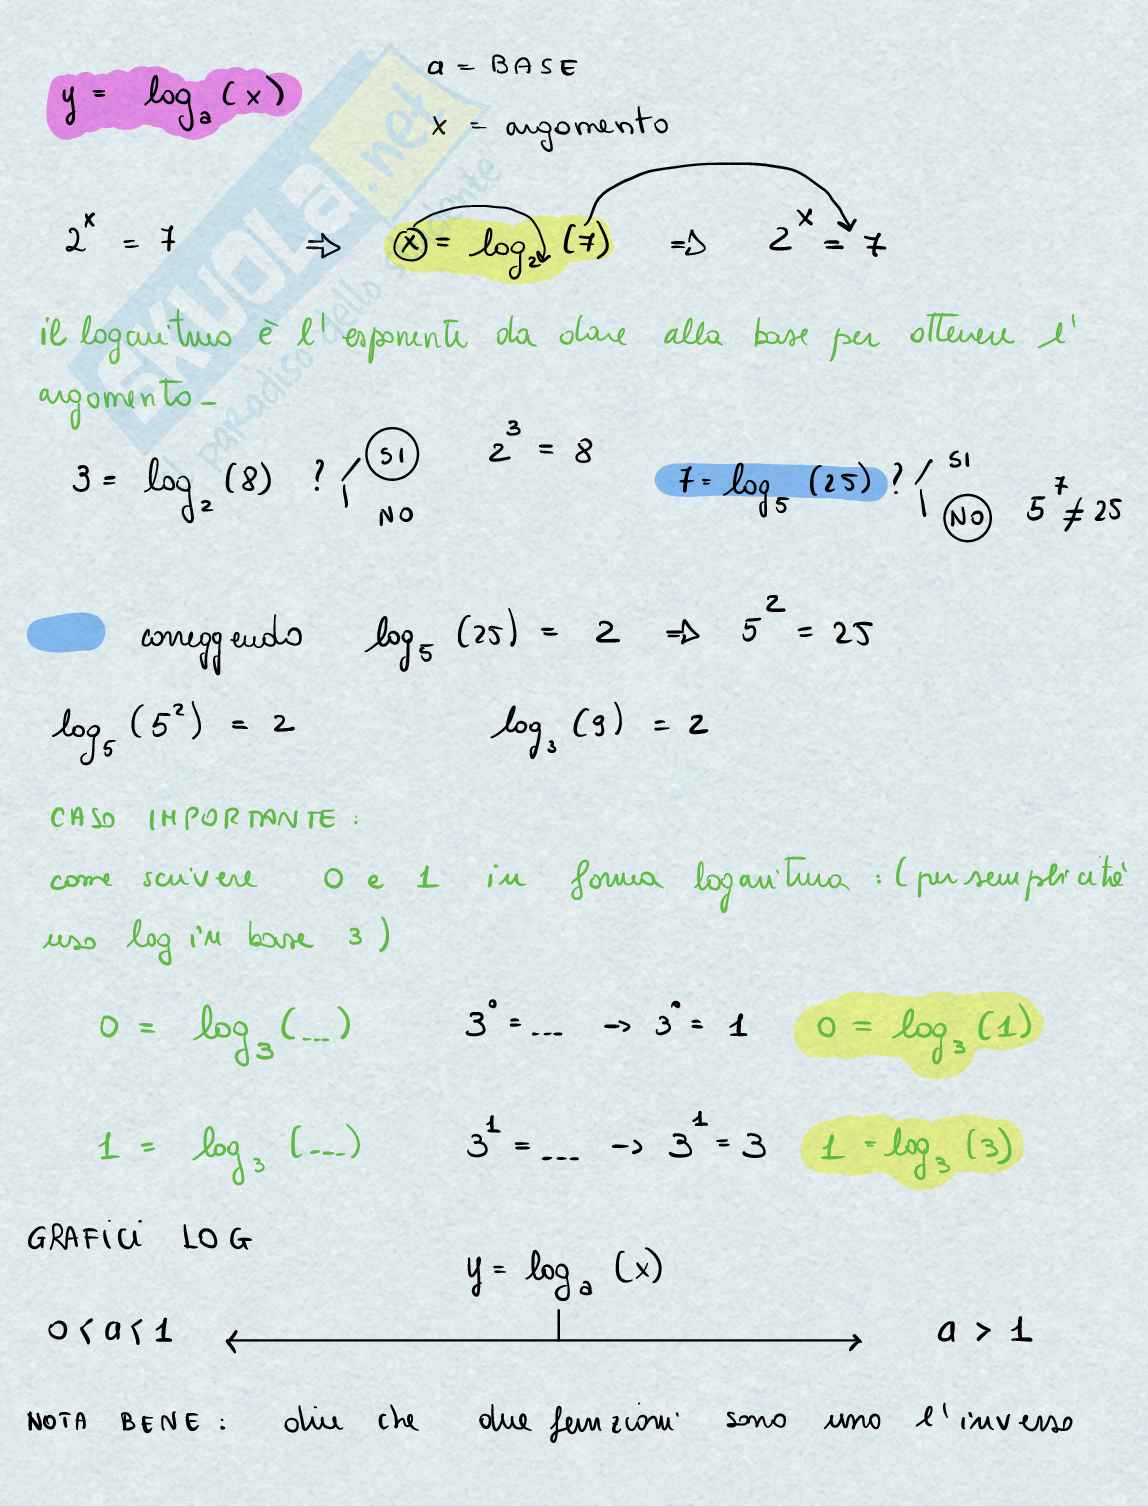 y = logₐ (x)
a = BASE
x = argomento
2ˣ = 7 ⇒ x = log₂ (7) ⇒ 2ˣ = 7
il logaritmo è l'esponente da dare alla base per ottenere l'
argomento_
3 = log₂ (8) ? SI NO 2³ = 8 7 = log₅ (25) ? SI NO 5⁷ ≠ 25
correggendo log₅ (25) = 2 ⇒ 5² = 25
log₅ (5²) = 2 log₃ (9) = 2
CASO IMPORTANTE:
come scrivere 0 e 1 in forma logaritmica : (per semplicità
uso log in base 3)
0 = log₃ (---) 3⁰ = --- → 3⁰ = 1 0 = log₃ (1)
1 = log₃ (---) 3¹ = --- → 3¹ = 3 1 = log₃ (3)
GRAFICI LOG
y = logₐ (x)
0 < a < 1 a > 1
NOTA BENE: dire che due funzioni sono uno l'inverso
SKUOLA.net
paradiso dello studente